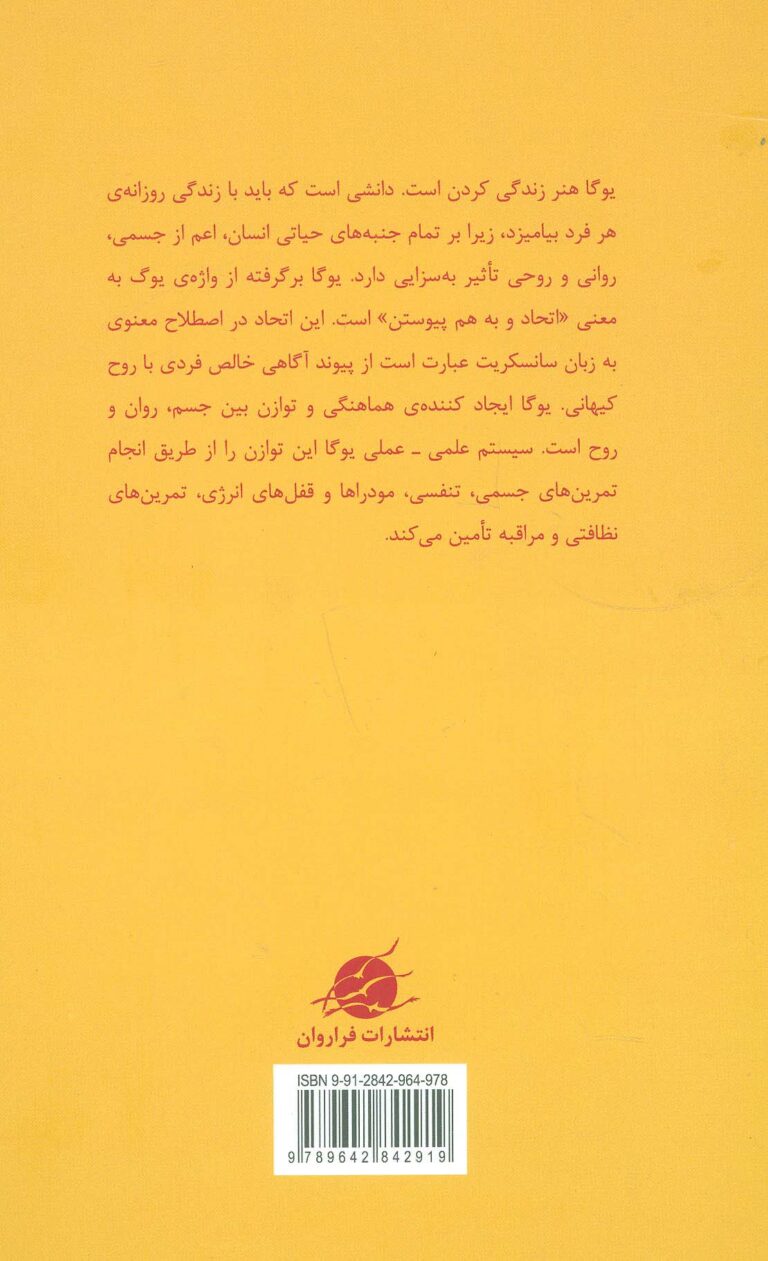 یوگا هنر زندگی کردن است. دانشی است که باید با زندگی روزانه‌ی
هر فرد بیامیزد، زیرا بر تمام جنبه‌های حیاتی انسان، اعم از جسمی،
روانی و روحی تأثیر به‌سزایی دارد. یوگا برگرفته از واژه‌ی یوگ به
معنی «اتحاد و به هم پیوستن» است. این اتحاد در اصطلاح معنوی
به زبان سانسکریت عبارت است از پیوند آگاهی خالص فردی با روح
کیهانی. یوگا ایجاد کننده‌ی هماهنگی و توازن بین جسم، روان و
روح است. سیستم علمی ـ عملی یوگا این توازن را از طریق انجام
تمرین‌های جسمی، تنفسی، مودراها و قفل‌های انرژی، تمرین‌های
نظافتی و مراقبه تأمین می‌کند.
انتشارات فراروان
ISBN 9-91-2842-964-978
9 789642 842919